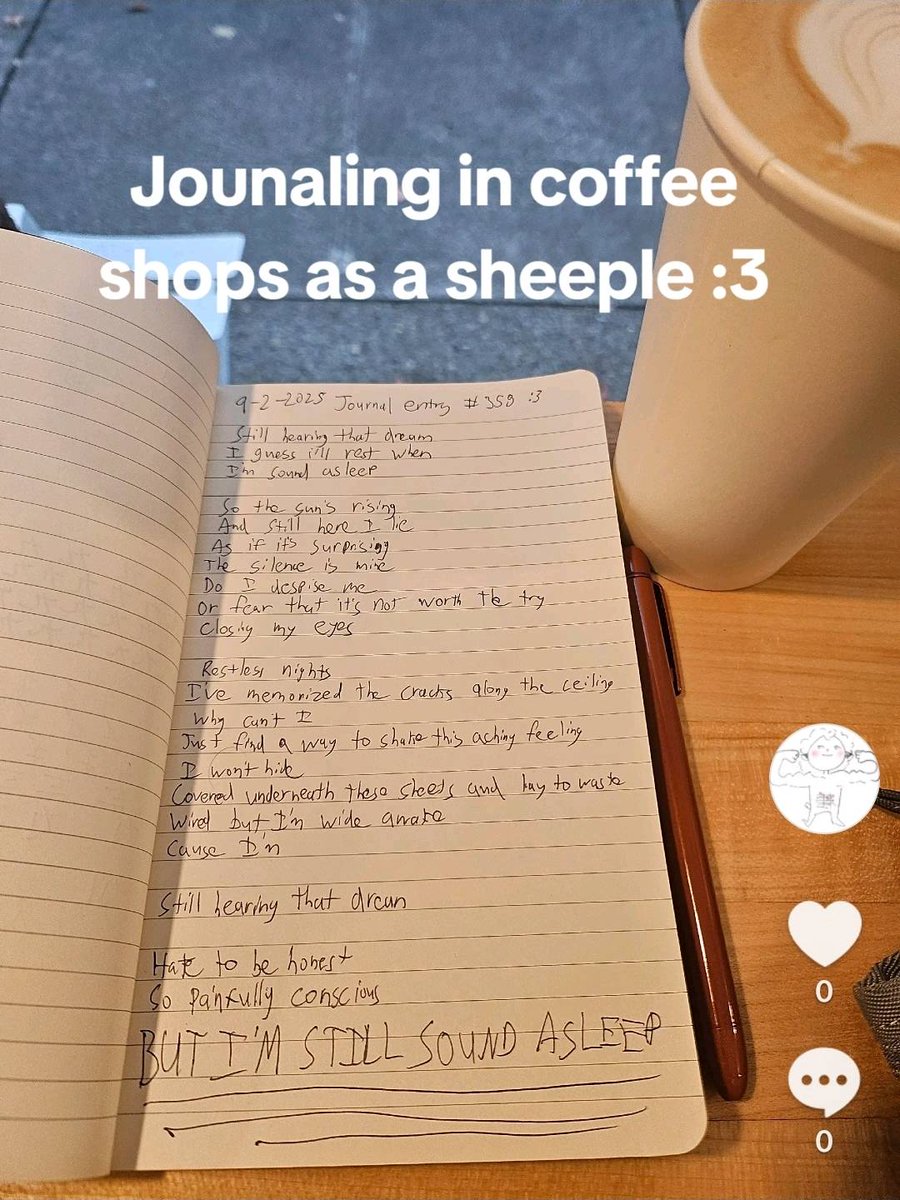 Jounaling in coffee
shops as a sheeple :3
9-2-2025 Journal entry #358 :3
Still hearing that dream
I guess i'll rest when
I'm sound asleep
So the sun's rising
And still here I lie
As if it's surprising
The silence is mine
Do I despise me
Or fear that it's not worth the try
Closing my eyes
Restless nights
I've memorized the cracks along the ceiling
Why can't I
Just find a way to shake this aching feeling
I won't hide
Covered underneath these sheets and lay to waste
Wired but I'm wide awake
Cause I'm
Still hearing that dream
Hate to be honest
So painfully conscious
BUT I'M STILL SOUND ASLEEP
0
0